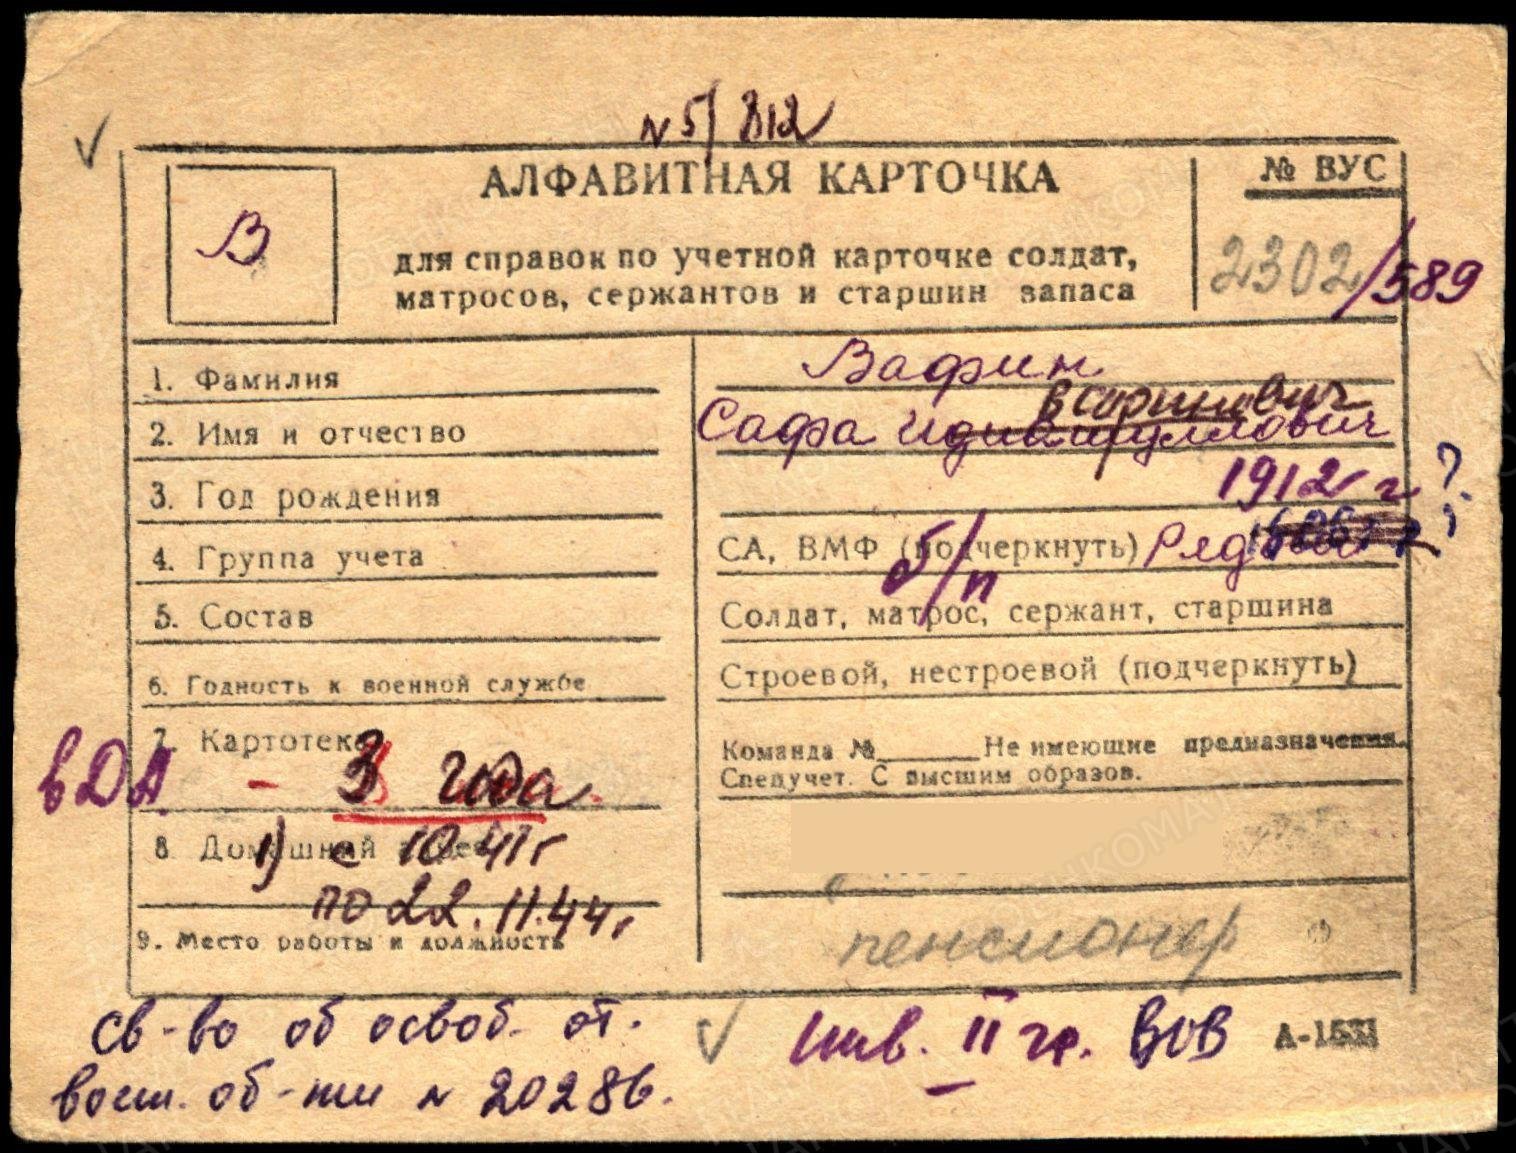 N 5/812
АЛФАВИТНАЯ КАРТОЧКА
№ ВУС
В
2302/589
для справок по учетной карточке солдат,
матросов, сержантов и старшин запаса
1. Фамилия
Вафин
2. Имя и отчество
Сафа
3. Год рождения
1912 г ?
4. Группа учета
СА, ВМФ (подчеркнуть) Рядовой
б/п
5. Состав
Солдат, матрос, сержант, старшина
6. Годность к военной службе
Строевой, нестроевой (подчеркнуть)
7. Картотека
Команда № ______ Не имеющие предназначения.
Спецучет. С высшим образов.
вДА - 3 года
8 Домашний адрес
1) с 10.41 г
по 22.11.44 г.
9. Место работы и должность
пенсионер
св-во об освоб. от.
воен. об-ти N 20286.
инв. II гр. ВОВ
А-1531